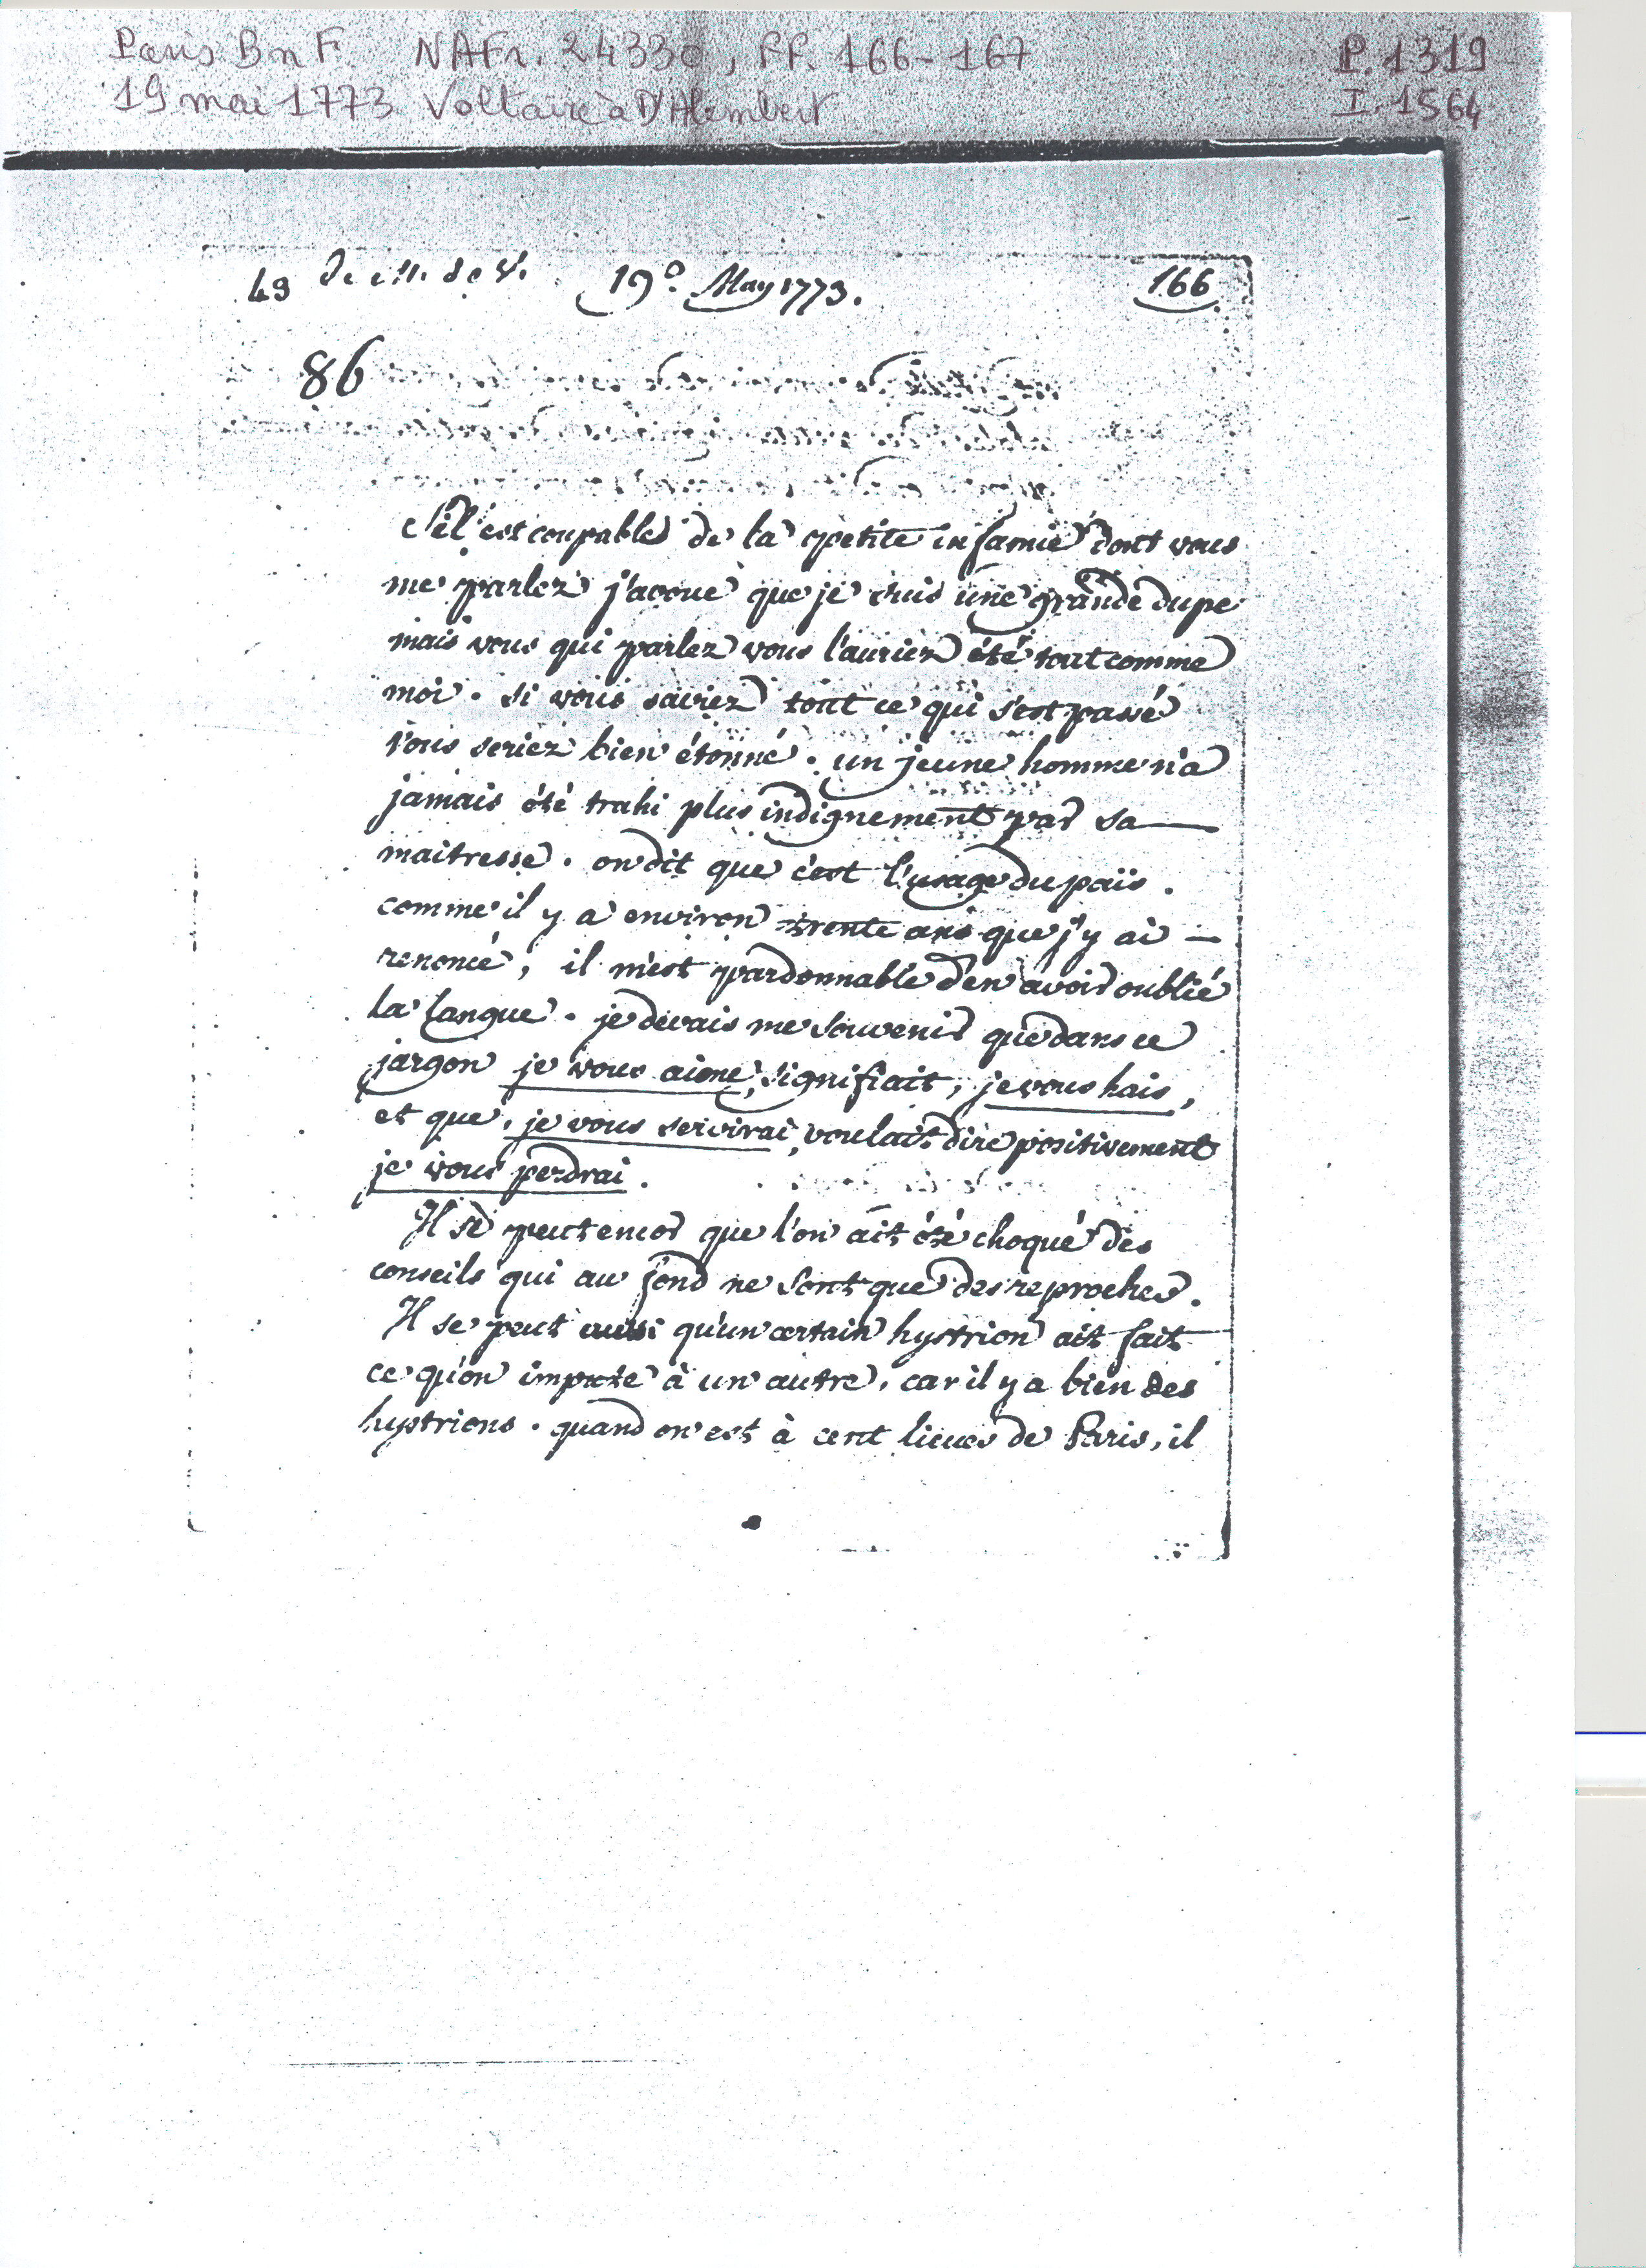 Paris BnF NAFr. 24330, ff. 166-167 P. 1319
19 mai 1773 Voltaire à D'Alembert I. 1564
49 De M. de V. 19e. May 1773. 166
86
S'il est coupable de la petite infamie dont vous
me parlez j'avoue que je suis une grande dupe
mais vous qui parlez vous l'auriez été tout comme
moi. si vous saviez tout ce qui s'est passé
vous seriez bien étonné. un jeune homme n'a
jamais été trahi plus indignement par sa
maitresse. on dit que c'est l'usage du païs.
comme il y a environ trente ans que j'y ai
renoncé, il m'est pardonnable d'en avoir oublié
la langue. je devais me souvenir que dans ce
jargon je vous aime, signifiait, je vous hais,
et que, je vous servirai, voulait dire positivement
je vous perdrai.
Il se peut encor que l'on ait été choqué des
conseils qui au fond ne sont que des reproches.
Il se peut aussi qu'un certain hystrion ait fait
ce qu'on impute à un autre. car il y a bien des
hystrions. quand on est à cent lieues de Paris, il